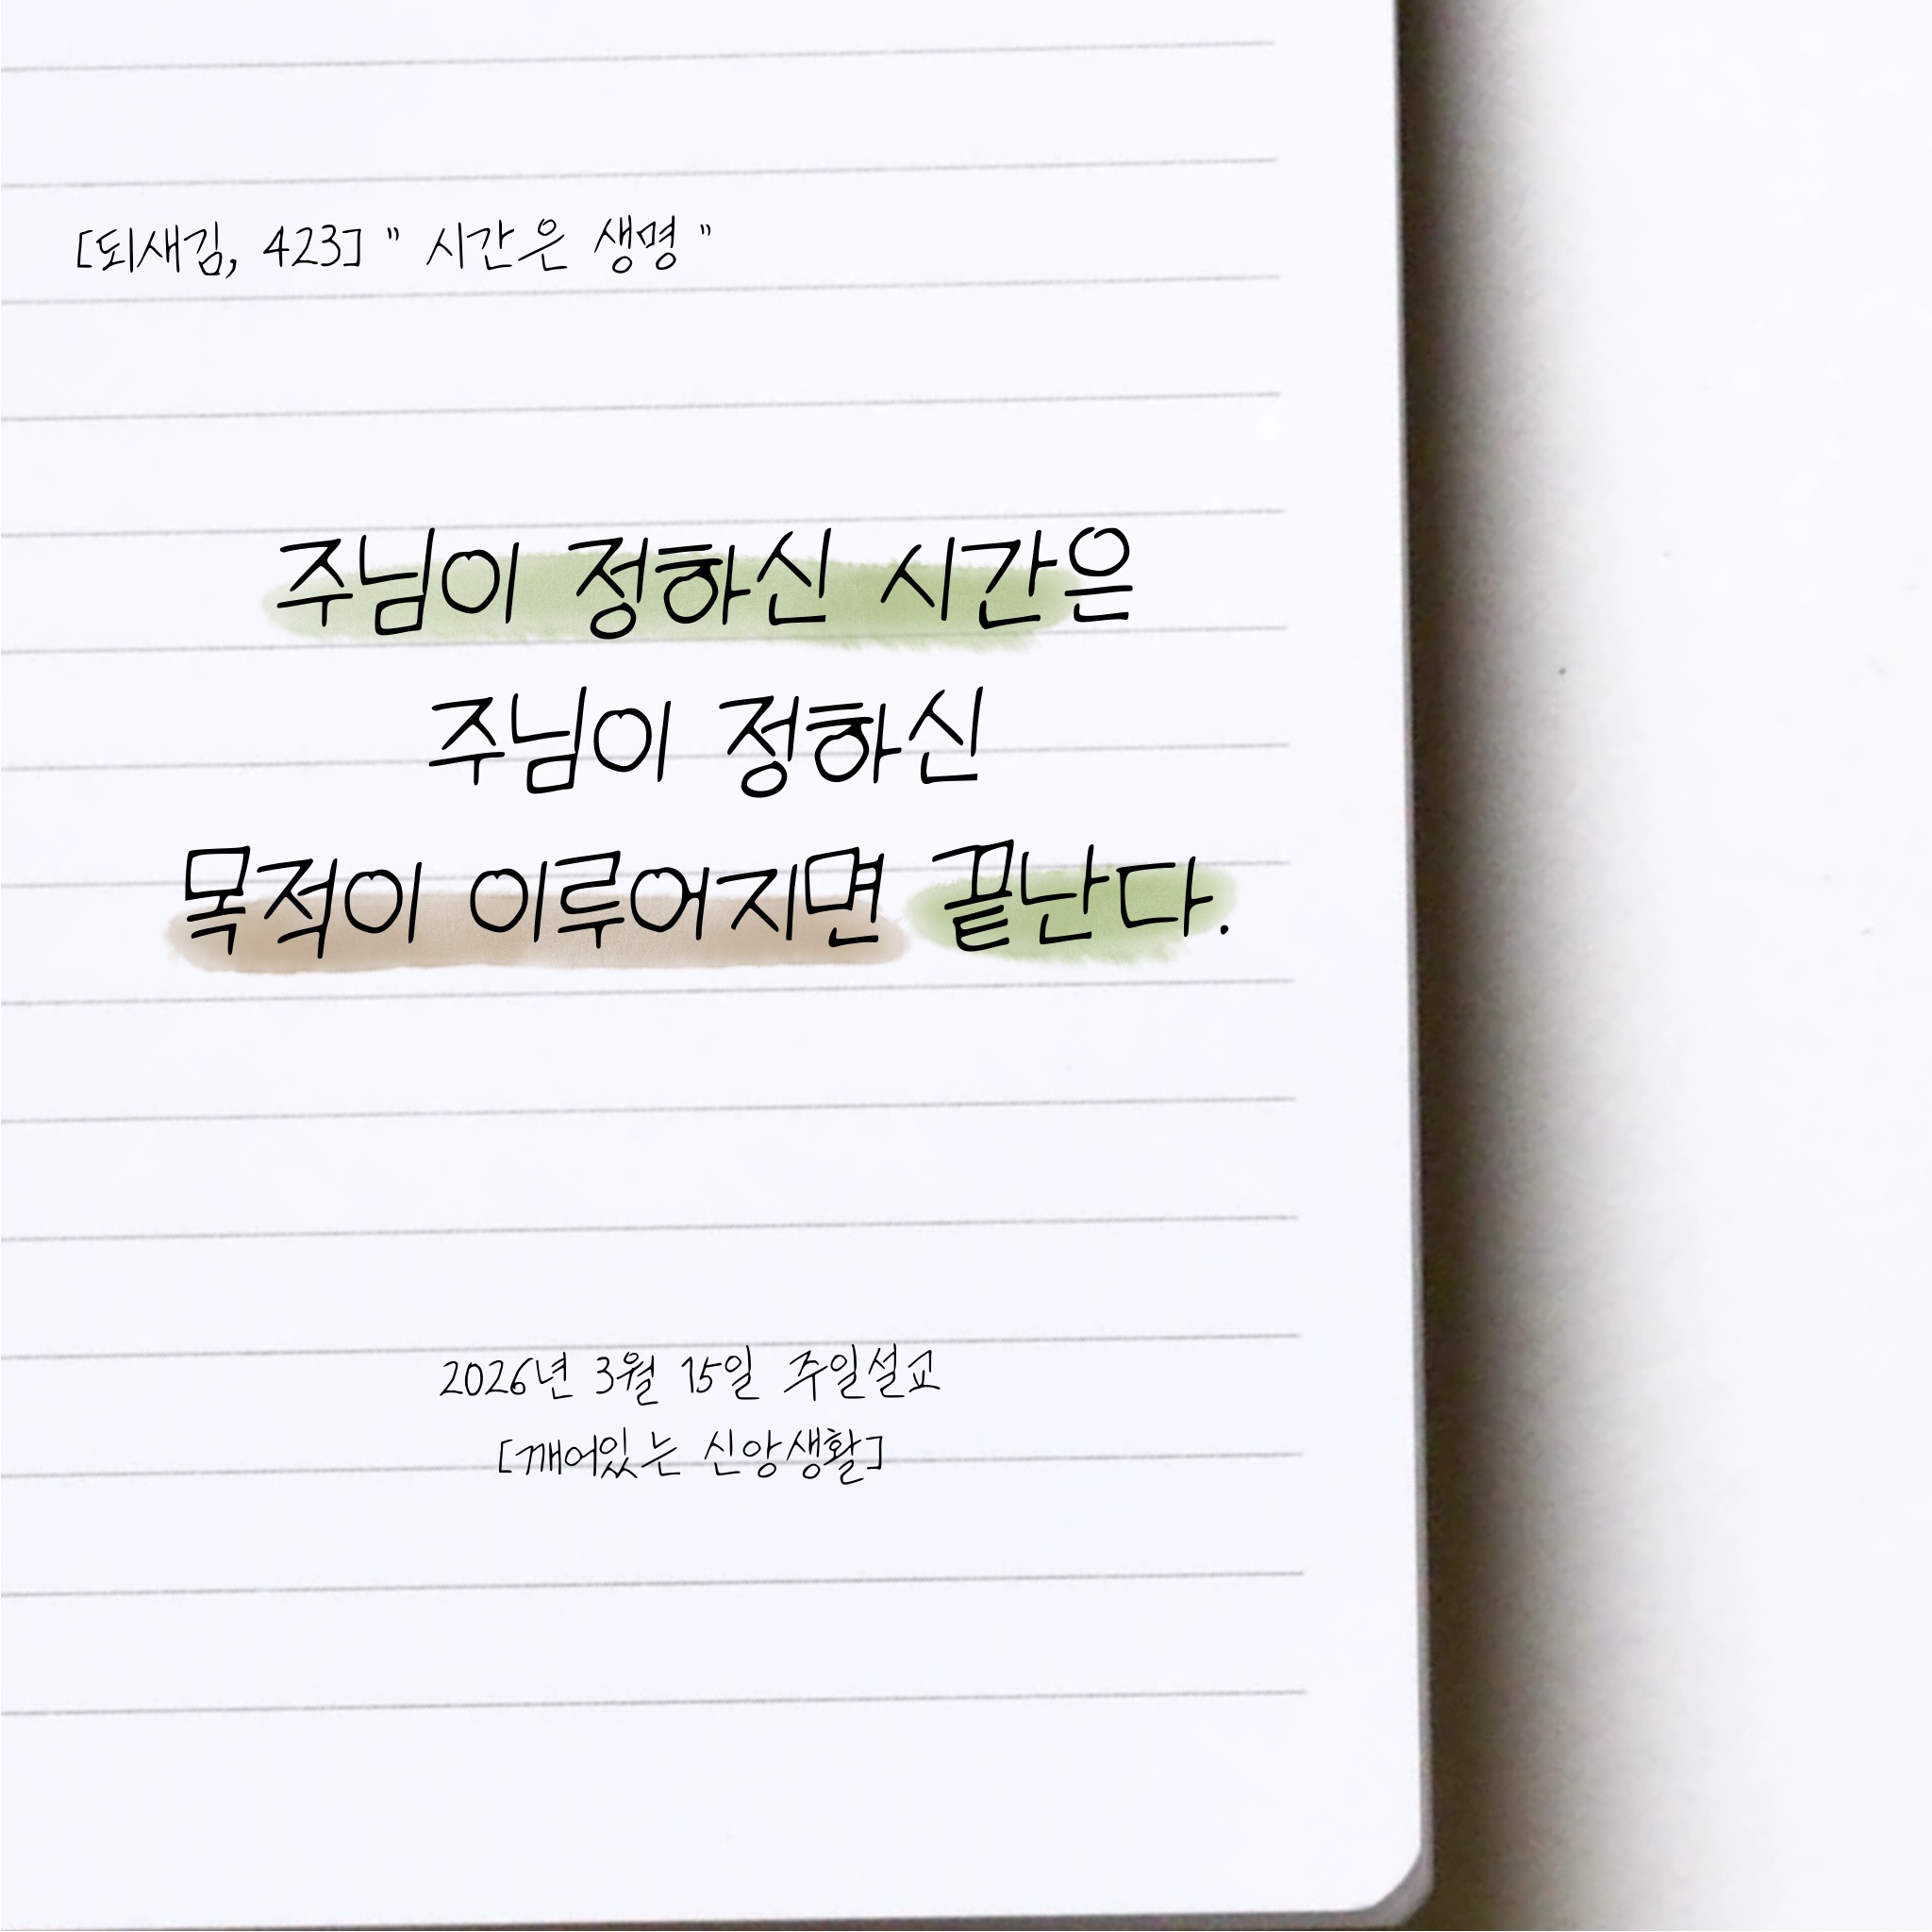 [되새김, 423] " 시간은 생명 "
주님이 정하신 시간은
주님이 정하신
목적이 이루어지면 끝난다.
2026년 3월 15일 주일설교
[깨어있는 신앙생활]